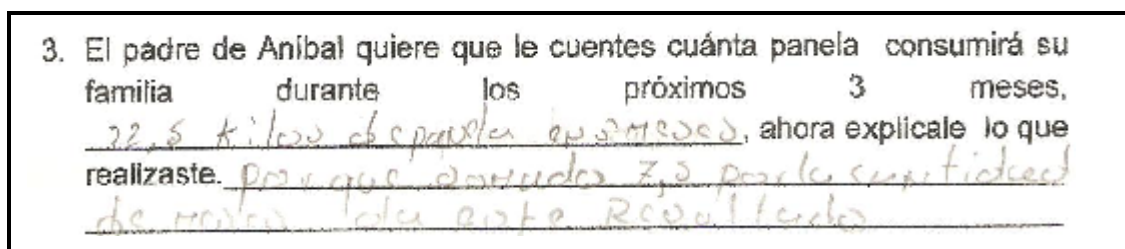 3. El padre de Aníbal quiere que le cuentes cuánta panela consumirá su
familia durante los próximos 3 meses,
22,5 kilos de panela en 3 meses, ahora explicale lo que
realizaste. porque 7,5 por la cantidad
de meses da este Resultado